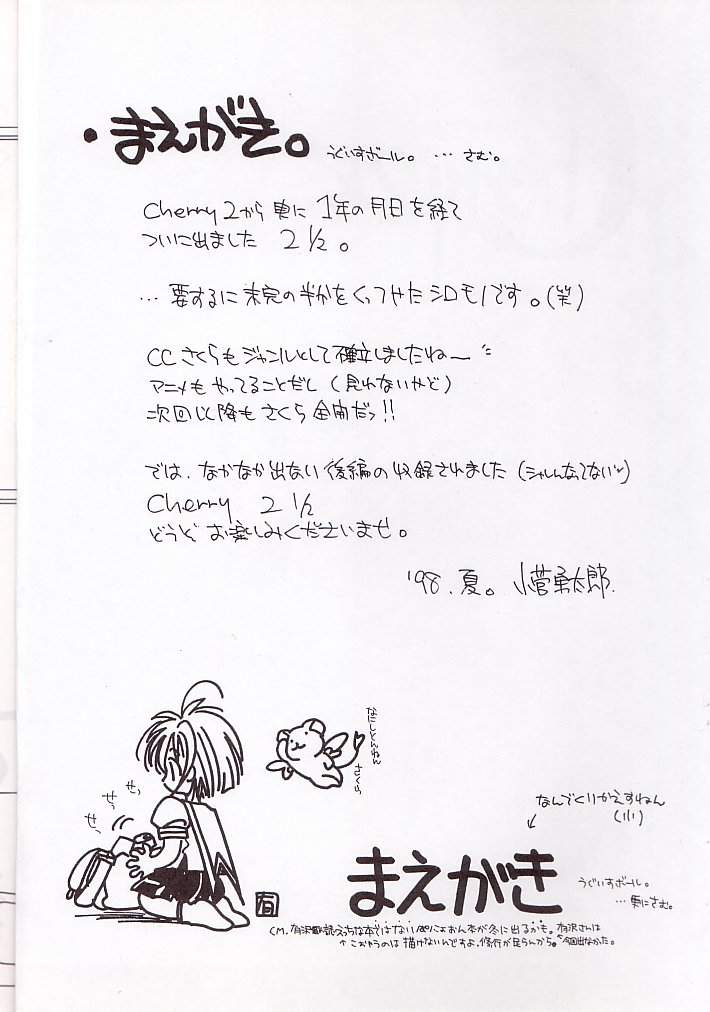 ・まえがき。 うぐいすボール。 … さむ。
Cherry 2から更に 1年の月日を経て
ついに出ました 2 1/2。
… 要するに未完の半分をくっつけたシロモノです。(笑)
CCさくらもジャンルとして確立しましたね〜
アニメもやってることだし (見れないけど)
次回以降もさくら全開だっ!!
では、なかなか出ない後編の収録されました (シャレんなってないい)
Cherry 2 1/2
どうぞ お楽しみくださいませ。
'98.夏。 小菅勇太郎.
なにしとんねん
さくら
せっ
せっ
せっ
なんでくりかえすねん
(小)
↙
まえがき うぐいすボール。
… 更にさむ。
有
CM. 有沢 えっちな本ではない ぷにょおん本が冬に出るかも。有沢さんは
↑ こおゆうのは描けないんですよ、修行が足らんから。 今回出なかった。